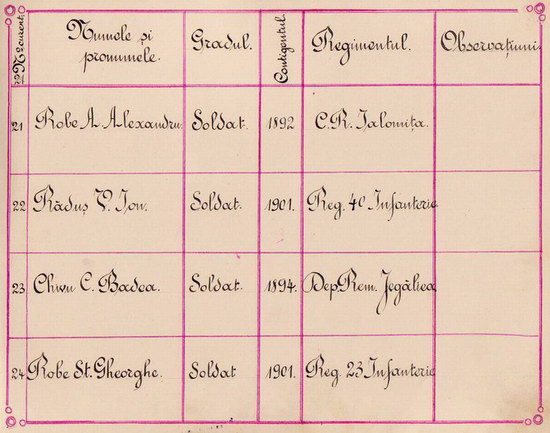 No curent. Numele și pronumele. Gradul. Contigentul. Regimentul. Observațiuni
21 Robe A. Alexandru. Soldat. 1892 C.R. Ialomița.
22 Răduș V. Ion. Soldat. 1901. Reg. 40 Infanterie
23 C. Badea. Soldat. 1894. Dep. Rem. Jegăliea
24 Robe St. Gheorghe. Soldat 1901. Reg. 23 Infanterie